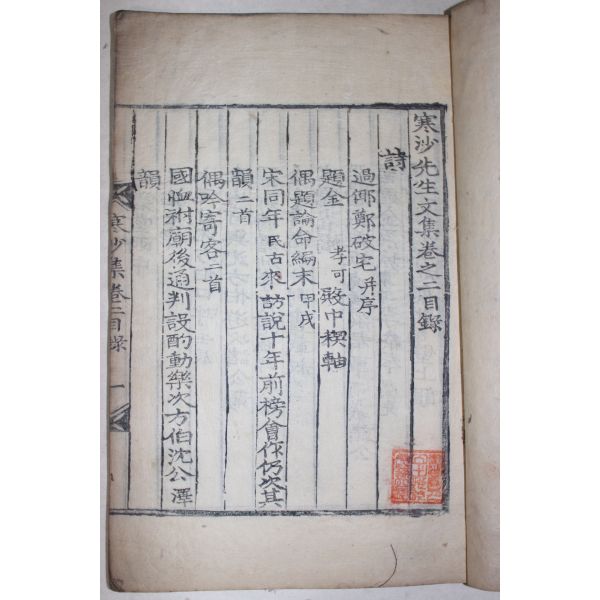 寒沙先生文集卷之二目錄
詩
過鄭碬宅 幷序
題金 孝可 中楔軸
偶題論命編末 甲戌
宋同年 民古 來訪說十年前榜會作仍次其
韻 二首
偶吟寄客 二首
國恤祔廟後通判設酌動樂次方伯沈公澤
韻
寒沙集卷二目錄 一